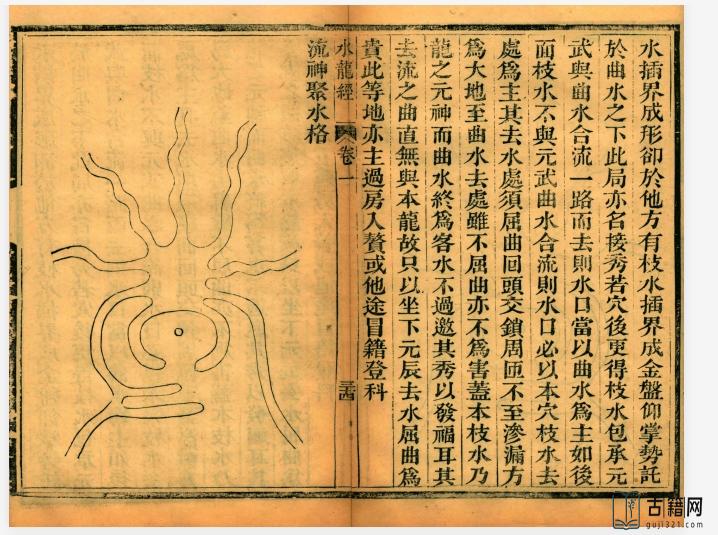 水插界成形卻於他方有枝水插界成金盤仰掌勢託
於曲水之下此局亦名接秀若穴後更得枝水包承元
武與曲水合流一路而去則水口當以曲水爲主如後
面枝水不與元武曲水合流則水口必以本穴枝水去
處爲主其去水處須屈曲回頭交鎖周匝不至滲漏方
爲大地至曲水去處雖不屈曲亦不爲害蓋本枝水乃
龍之元神而曲水終爲客水不過邀其秀以發福耳其
去流之曲直無與本龍故只以坐下元辰去水屈曲爲
貴此等地亦主過房入贅或他途冒籍登科
水龍經 卷一 三四
流神聚水格
古籍网
guji321.com